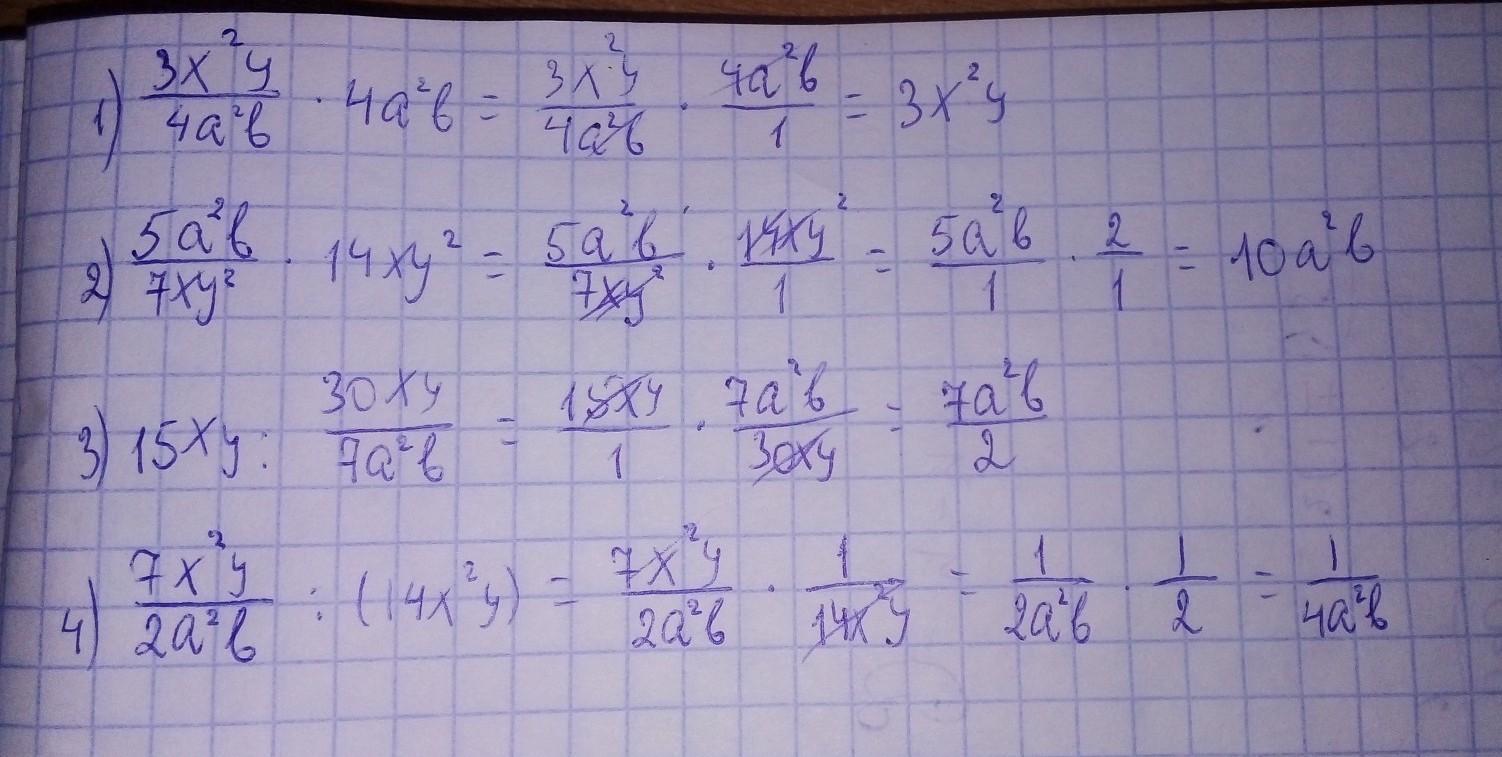 1) 3x²y/4a²b · 4a²b = 3x²y/4a²b · 4a²b/1 = 3x²y
2) 5a²b/7xy² · 14xy² = 5a²b/7xy² · 14xy²/1 = 5a²b/1 · 2/1 = 10a²b
3) 15xy : 30xy/7a²b = 15xy/1 · 7a²b/30xy = 7a²b/2
4) 7x²y/2a²b : (14x²y) = 7x²y/2a²b · 1/14x²y = 1/2a²b · 1/2 = 1/4a²b